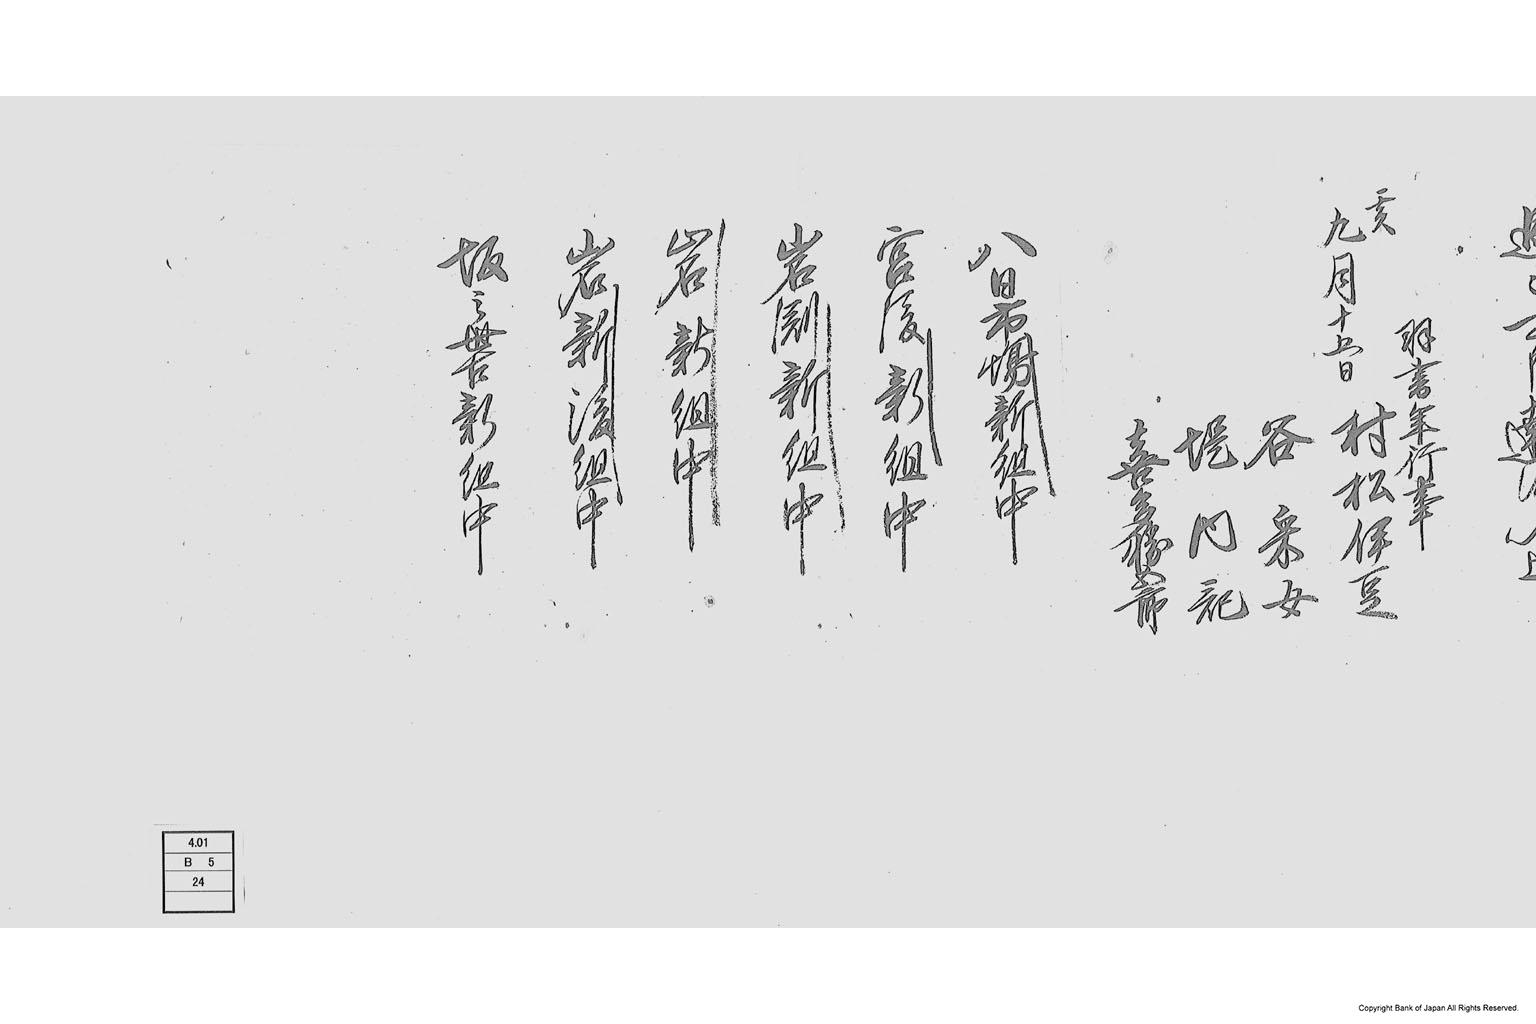 以上
羽書年行事
亥
九月十五日
村松伊豆
谷采女
堤内記
八日市場新組中
宮後新組中
岩渕新組中
岩新組中
岩新後組中
坂之世古新組中
4.01
B 5
24
Copyright Bank of Japan All Rights Reserved.